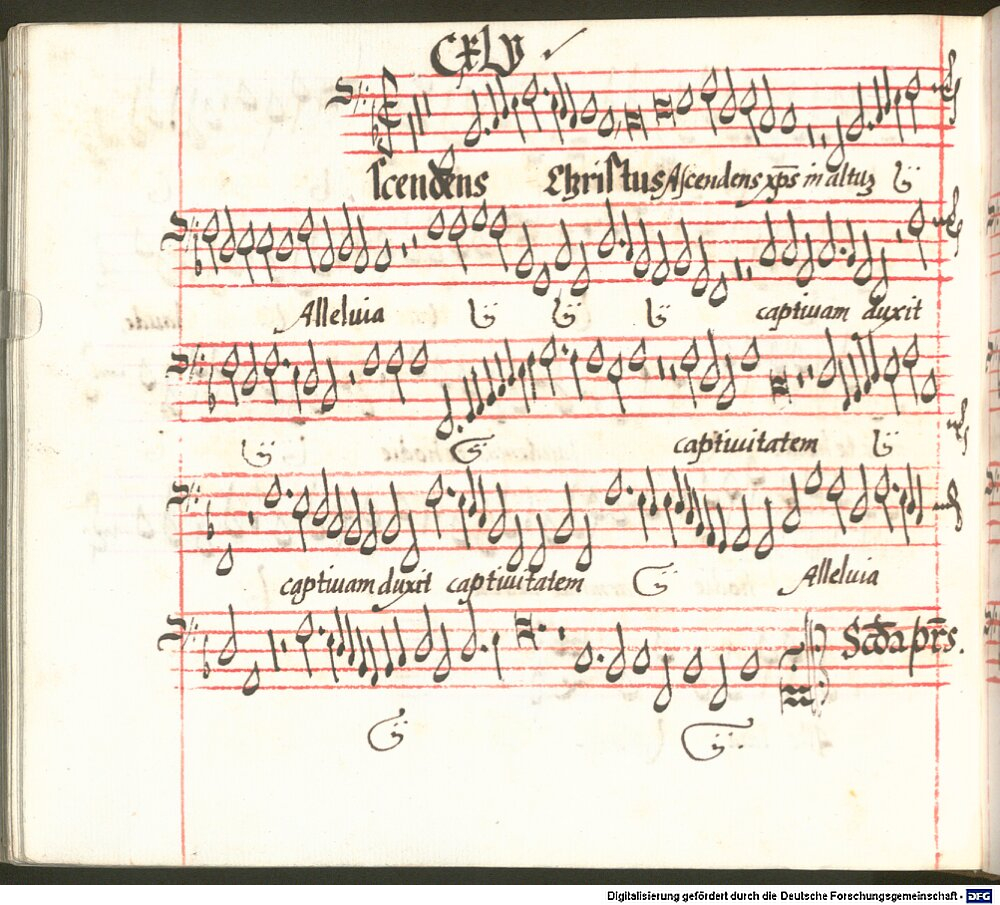 CXLV
scendens Christus Ascendens xp̄s in altuʒ ij
Alleluia ij ij ij captiuam duxit
ij ij captiuitatem ij
captiuam duxit captiuitatem ij Alleluia
Scd̄a pr̄s.
ij ij.
Digitalisierung gefördert durch die Deutsche Forschungsgemeinschaft - DFG